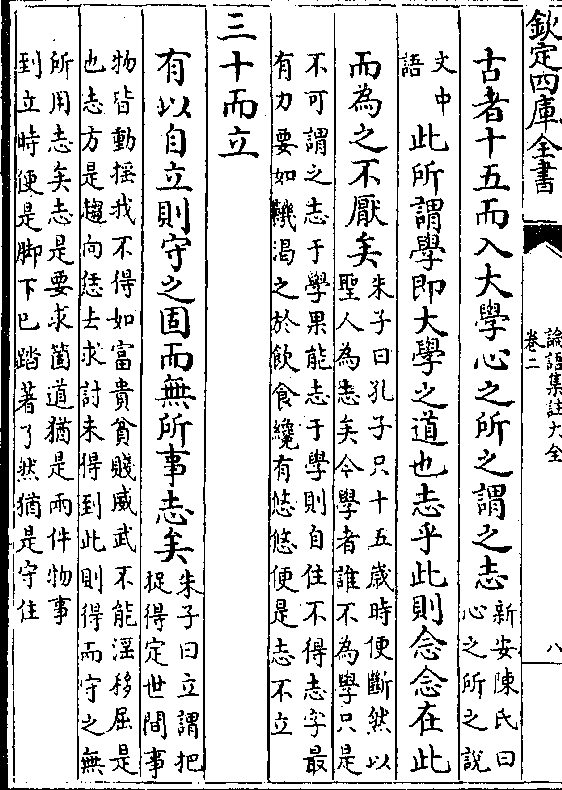 欽定四庫全書
論語集註大全
卷二
八
古者十五而入大學心之所之謂之志
新安陳氏曰
心之所之說
文中
語
此所謂學即大學之道也志乎此則念念在此
而為之不厭矣
朱子曰孔子只十五歲時便斷然以
聖人為志矣今學者誰不為學只是
不可謂之志于學果能志于學則自住不得志字最
有力要如饑渴之於飲食纔有悠悠便是志不立
三十而立
有以自立則守之固而無所事志矣
朱子曰立謂把
捉得定世間事
物皆動搖我不得如富貴貧賤威武不能淫移屈是
也志方是趨向恁去求討未得到此則得而守之無
所用志矣志是要求箇道猶是兩件物事
到立時便是脚下已踏著了然猶是守住